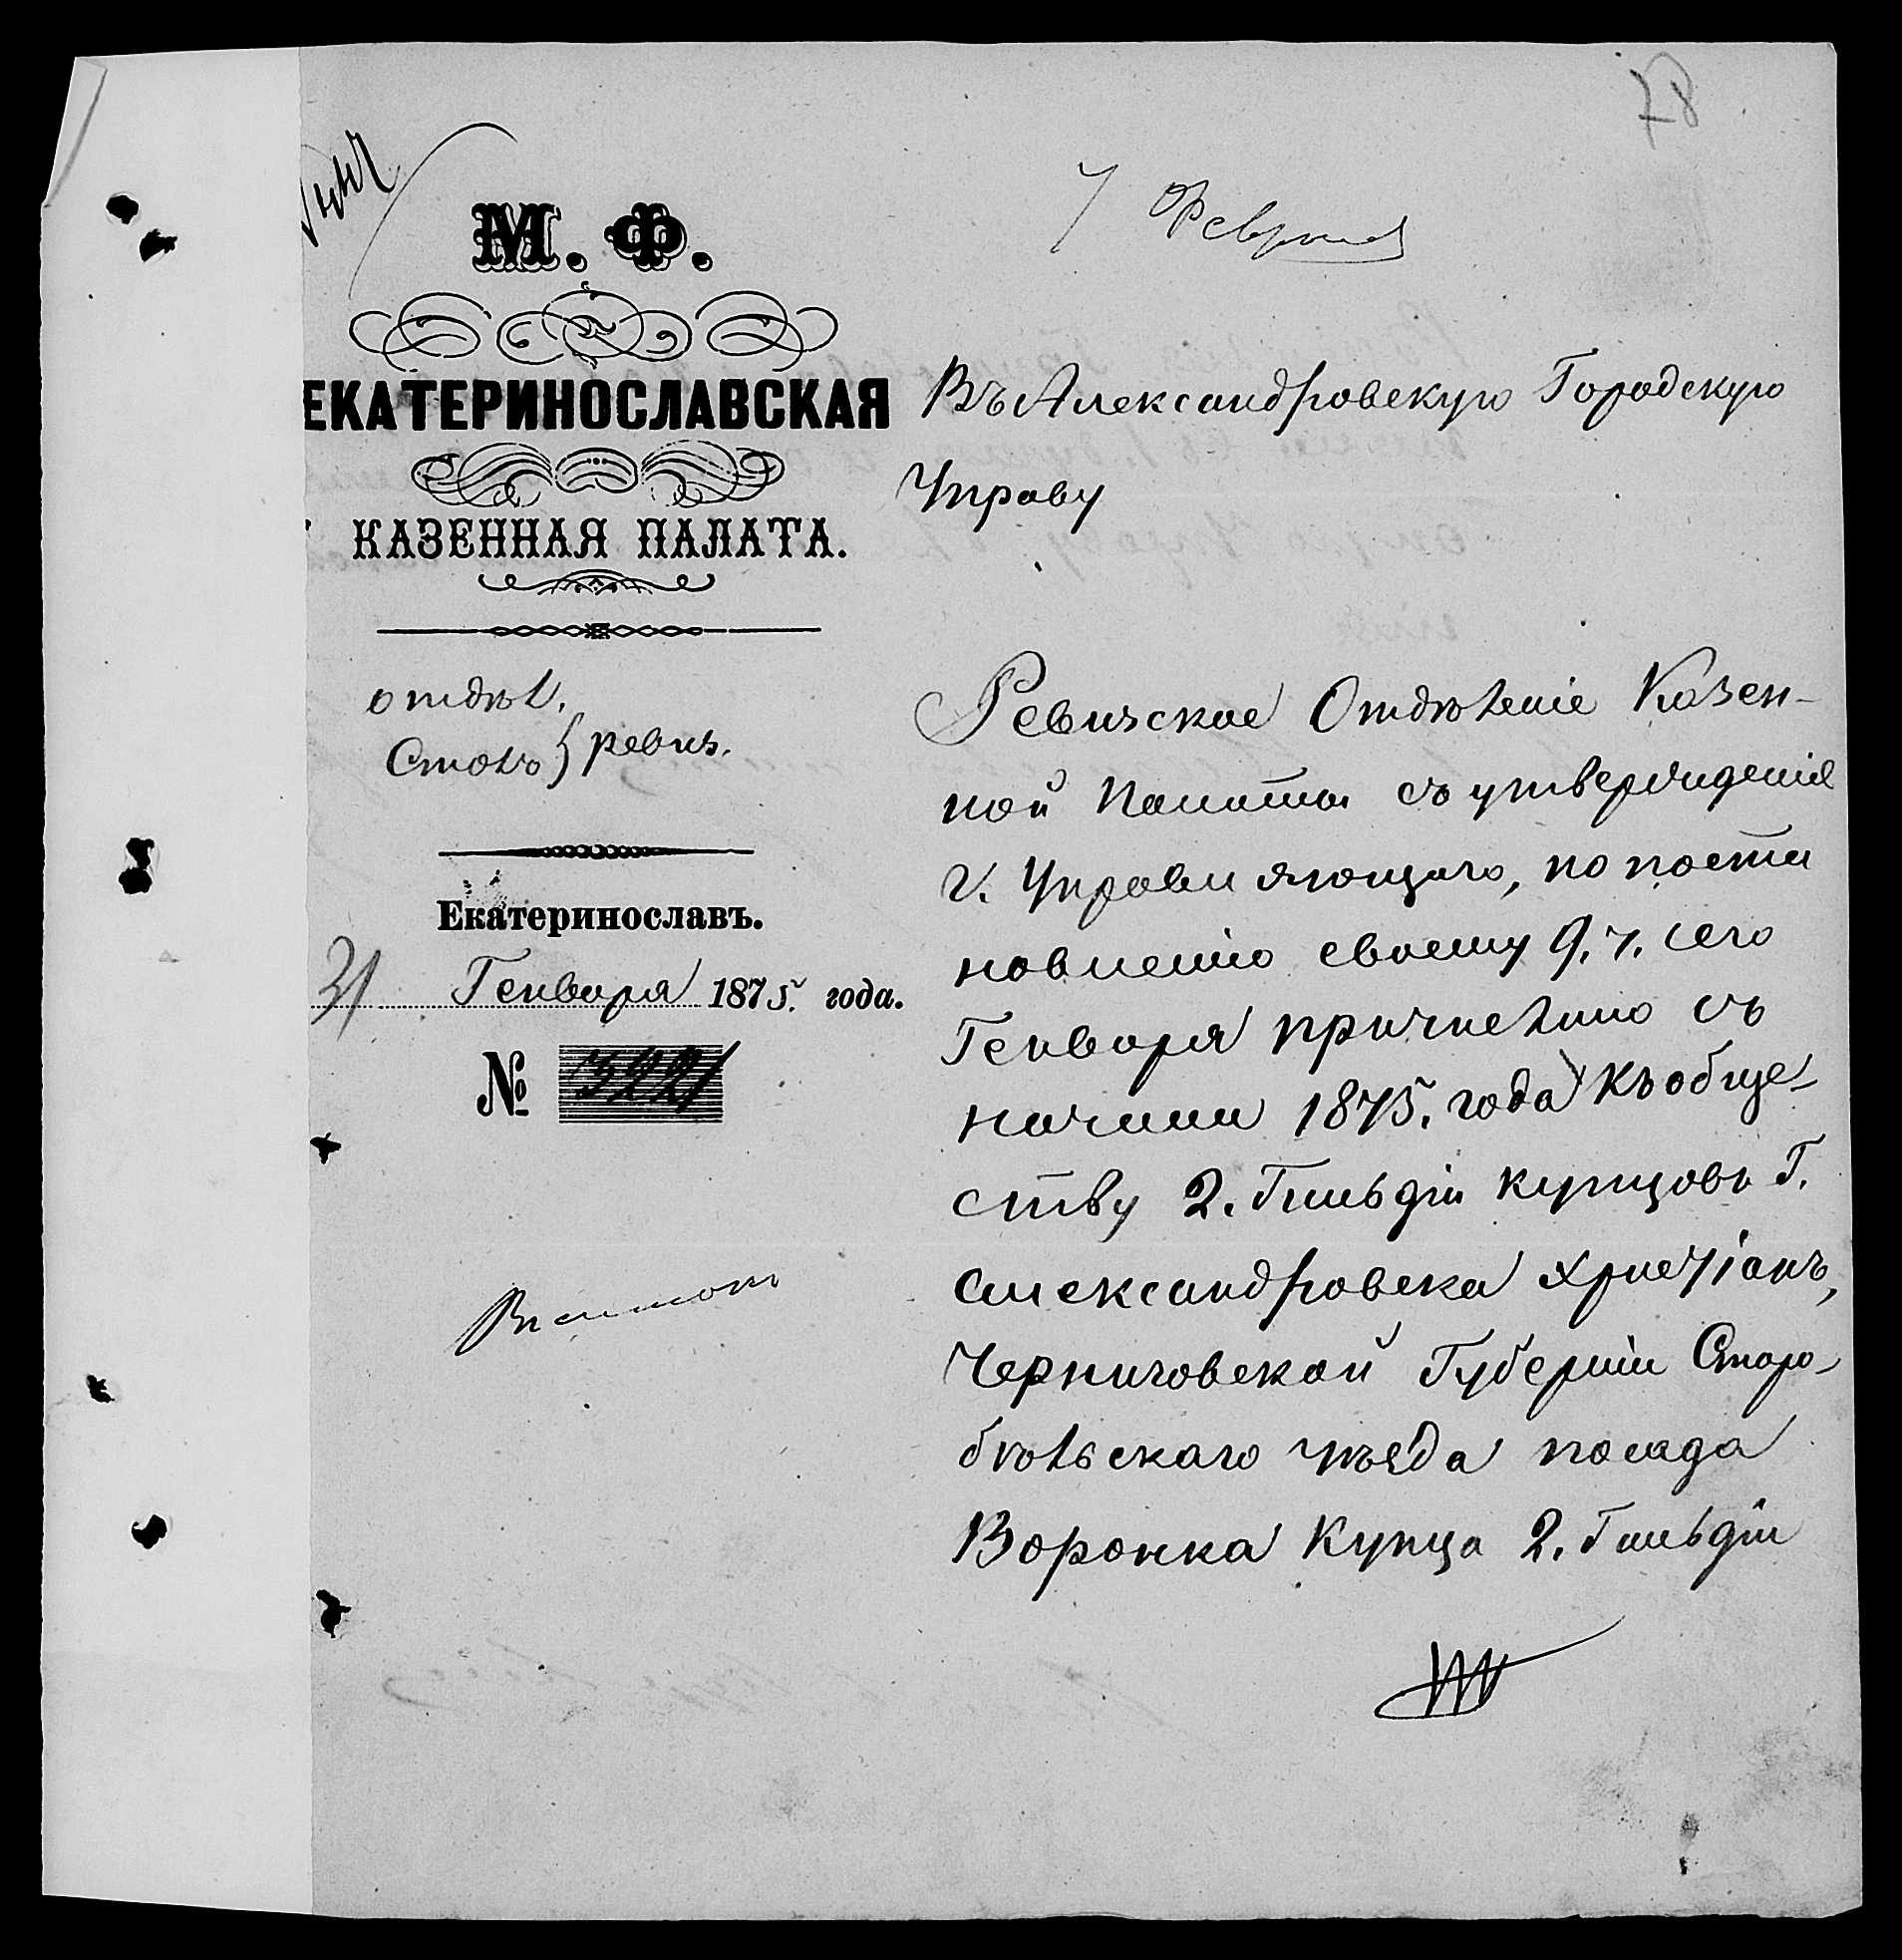 87
7 Февраля
М. Ф.
ЕКАТЕРИНОСЛАВСКАЯ
КАЗЕННАЯ ПАЛАТА.
отдѣл.
Столъ } ревиз.
Екатеринославъ.
31 Генваря 1875. года.
№ 3221
Въ Александровскую Городскую
Управу
Ревизское Отдѣленіе Казен-
ной Палаты съ утвержденія
г. Управляющаго, по поста
новленію своему 9. ч. сего
Генваря причислило съ
начала 1875. года къ обще-
ству 2. Гильдіи купцовъ Г.
Александровска христіанъ,
Черниговской Губерніи Старо-
бѣльскаго уѣзда посада
Воронка Купца 2. Гильдіи